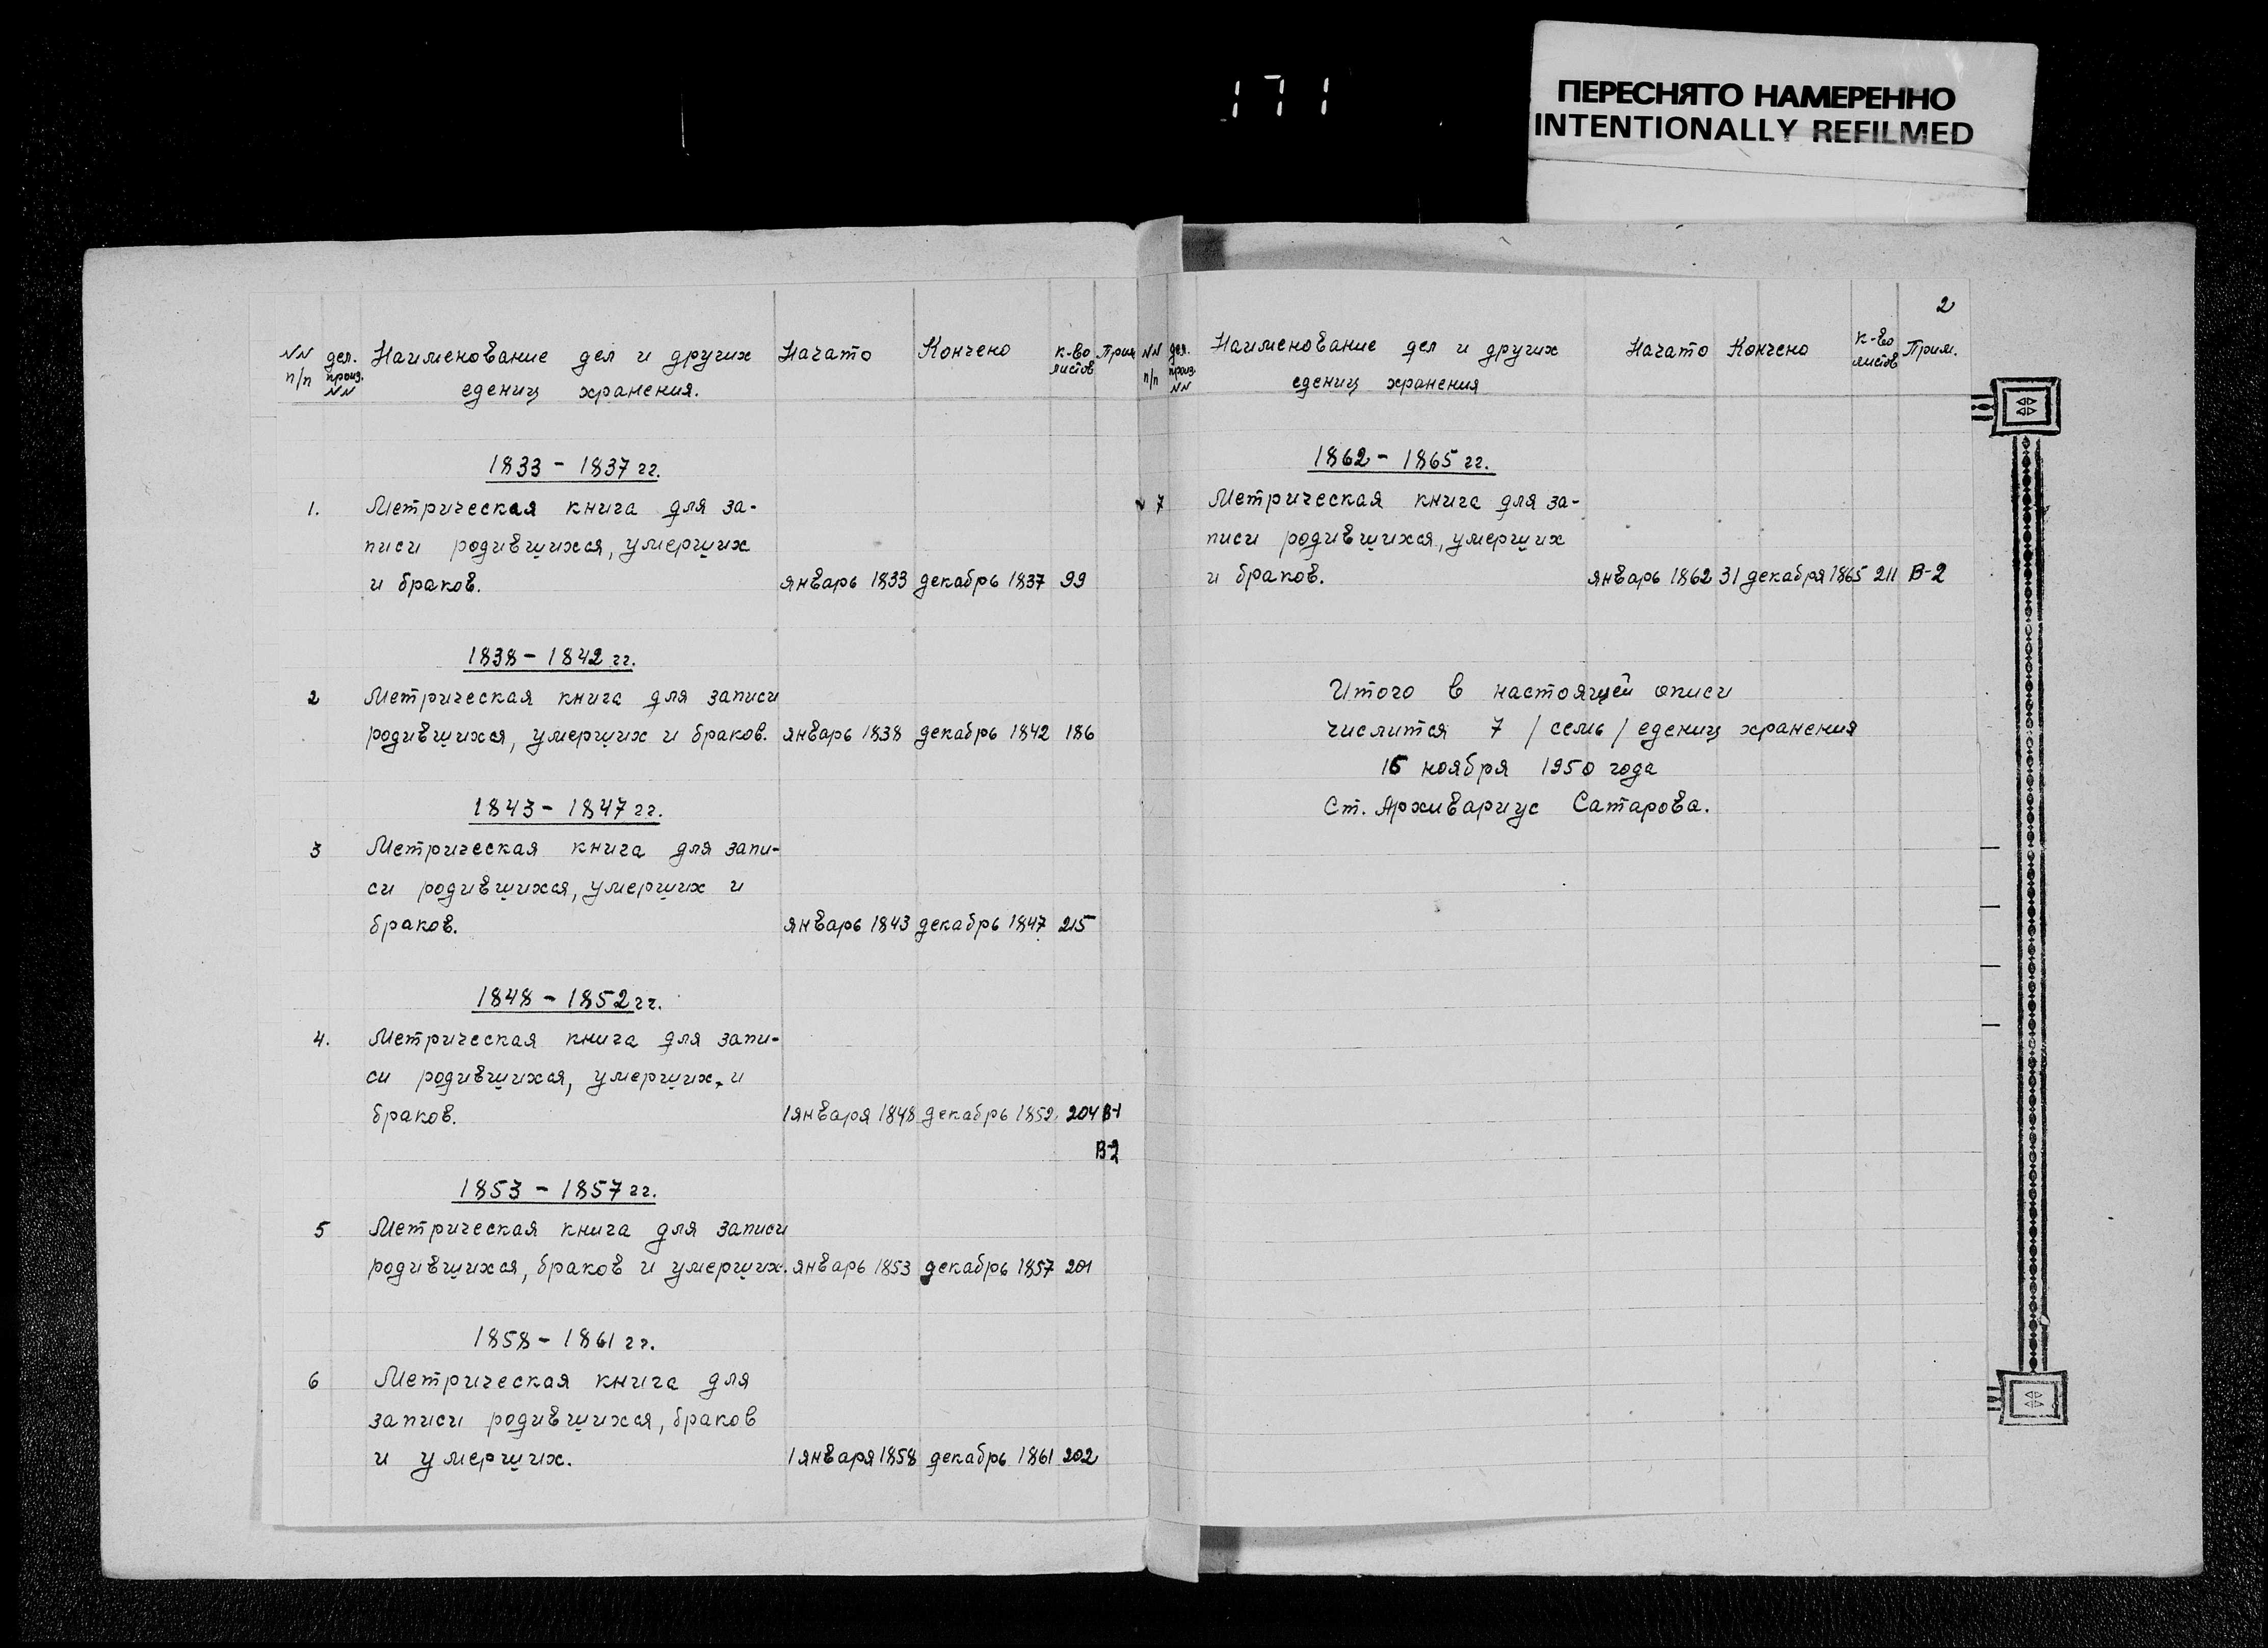 171
ПЕРЕСНЯТО НАМЕРЕННО
INTENTIONALLY REFILMED
NN п/п дел. произ. NN Наименование дел и других едениц хранения. Начато Кончено к-во листов Прим
1833 - 1837 гг.
1. Метрическая книга для за-
писи родившихся, умерших
и браков. январь 1833 декабрь 1837 99
1838 - 1842 гг.
2 Метрическая книга для записи
родившихся, умерших и браков. январь 1838 декабрь 1842 186
1843 - 1847 гг.
3 Метрическая книга для запи-
си родившихся, умерших и
браков. январь 1843 декабрь 1847 215
1848 - 1852 гг.
4. Метрическая книга для запи-
си родившихся, умерших, и
браков. 1 января 1848 декабрь 1852. 204 В-1
В-2
1853 - 1857 гг.
5 Метрическая книга для записи
родившихся, браков и умерших. январь 1853 декабрь 1857 201
1858 - 1861 гг.
6 Метрическая книга для
записи родившихся, браков
и умерших. 1 января 1858 декабрь 1861 202
2
NN п/п дел. произ. NN Наименование дел и других едениц хранения Начато Кончено к-во листов Прим.
1862 - 1865 гг.
7 Метрическая книга для за-
писи родившихся, умерших
и браков. январь 1862 31 декабря 1865 211 В-2
Итого в настоящей описи
числится 7 / семь / едениц хранения
16 ноября 1950 года
Ст. Архивариус Сатарова.